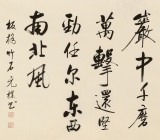 巖中千磨
萬擊還堅
勁任尔東西
南北風
板橋竹石